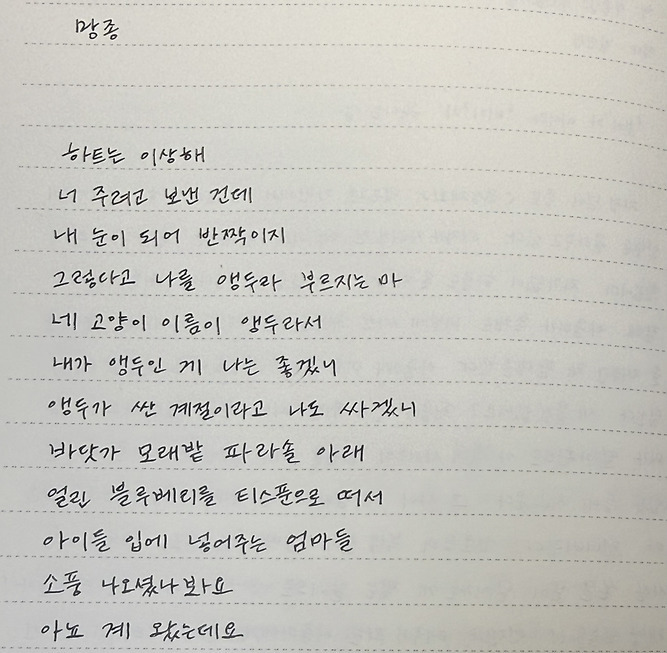 망종
하트는 이상해
너 주려고 보낸 건데
내 눈이 되어 반짝이지
그렇다고 나를 앵두라 부르지는 마
네 고양이 이름이 앵두라서
내가 앵두인 게 나는 좋겠니
앵두가 싼 계절이라고 나도 싸겠니
바닷가 모래밭 파라솔 아래
얼린 블루베리를 티스푼으로 떠서
아이들 입에 넣어주는 엄마들
소풍 나오셨나봐요
아뇨 계 왔는데요